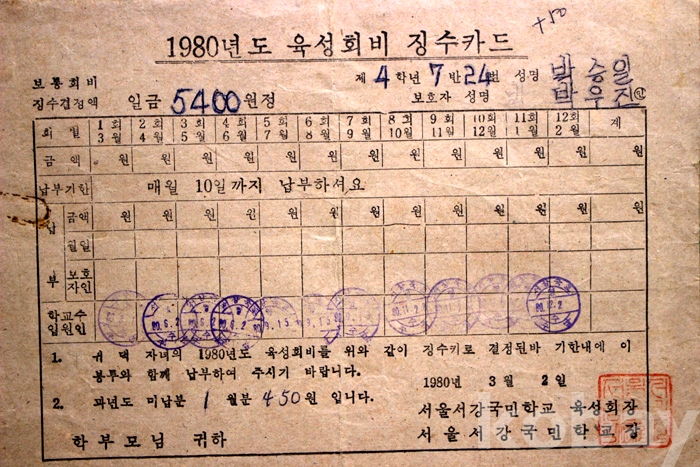 +50
1980년도 육성회비 징수카드
보통회비 제 4 학년 7 반 24번 성명 박승일
징수결정액 일금 5400원정 보호자 성명 박우진 인
회 별 1회 2회 3회 4회 5회 6회 7회 8회 9회 10회 11회 12회 계
3월 4월 5월 6월 7월 8월 9월 10월 11월 12월 1월 2월
금 액 원 원 원 원 원 원 원 원 원 원 원 원 원
납부기한 매월 10일까지 납부하셔요
납 금액 원 원 원 원 원 원 원 원 원 원 원 원 원
월일
부 보호
자인
학교수
입원인
1. 귀 댁 자녀의 1980년도 육성회비를 위와 같이 징수키로 결정된바 기한내에 이
봉투와 함께 납부하여 주시기 바랍니다.
1980년 3월 2일
2. 과년도 미납분 1 월분 450원 입니다.
서울서강국민학교 육성회장
학부모님 귀하 서울서강국민학교장